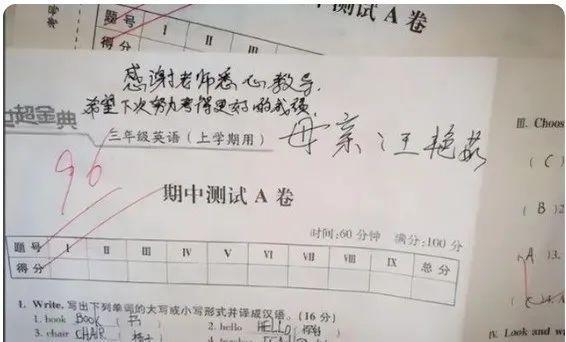 测试 A 卷
题 号 I II III
得 分
感谢老师悉心教导
希望下次努力考得更好的成绩
超金典
三年级英语（上学期用）
母亲汪艳茹
96
期中测试 A 卷
时间:60 分钟 满分:100 分
题 号 I II III IV V VI VII VIII IX 总 分
得 分
I. Write. 写出下列单词的大写或小写形式并译成汉语。(16 分)
1. book BOOK ( 书
2. hello HELLO (
3. chair CHAIR ( 椅子
III. Choos
( C )
( B )2
A )3.
IV. Look and w